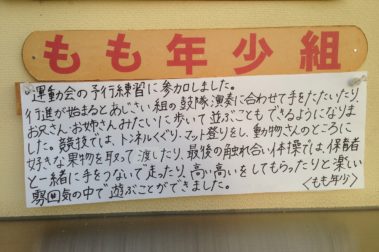 もも年少組
○運動会の予行練習に参加しました。
行進が始まるとあじさい組の鼓隊演奏に合わせて手をたたいたり、
お兄さん・お姉さんみたいに歩いて並ぶこともできるようになりま
した。競技では、トンネルくぐり・マット登りをし、動物さんのところに
好きな果物を取って渡したり、最後の触れ合い体操では、保育者
と一緒に手をつないで走ったり、高い高いをしてもらったりと楽しい
雰囲気の中で遊ぶことができました。
〈もも年少〉